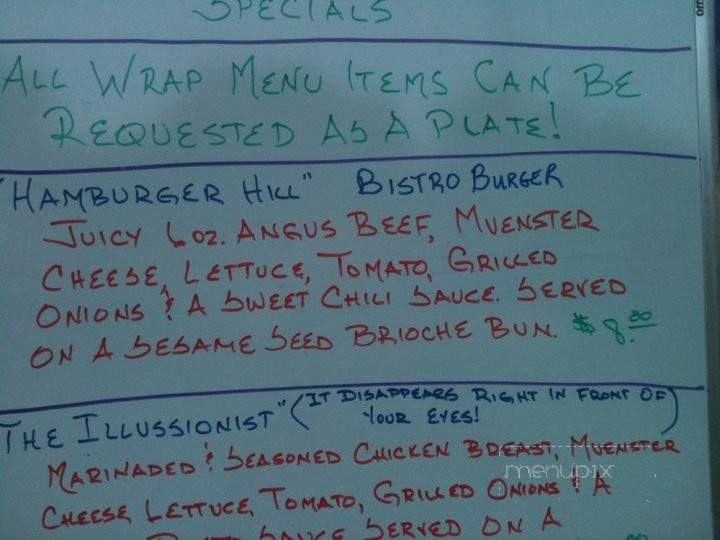 SPECIALS
ALL WRAP MENU ITEMS CAN BE
REQUESTED AS A PLATE!
"HAMBURGER HILL" BISTRO BURGER
JUICY 6 OZ. ANGUS BEEF, MUENSTER
CHEESE, LETTUCE, TOMATO, GRILLED
ONIONS & A SWEET CHILI SAUCE. SERVED
ON A SESAME SEED BRIOCHE BUN. $8.00
THE ILLUSSIONIST" (IT DISAPPEARS RIGHT IN FRONT OF
YOUR EYES!)
MARINADED & SEASONED CHICKEN BREAST, MUENSTER
CHEESE LETTUCE, TOMATO, GRILLED ONIONS & A
SAUCE SERVED ON A
menupix